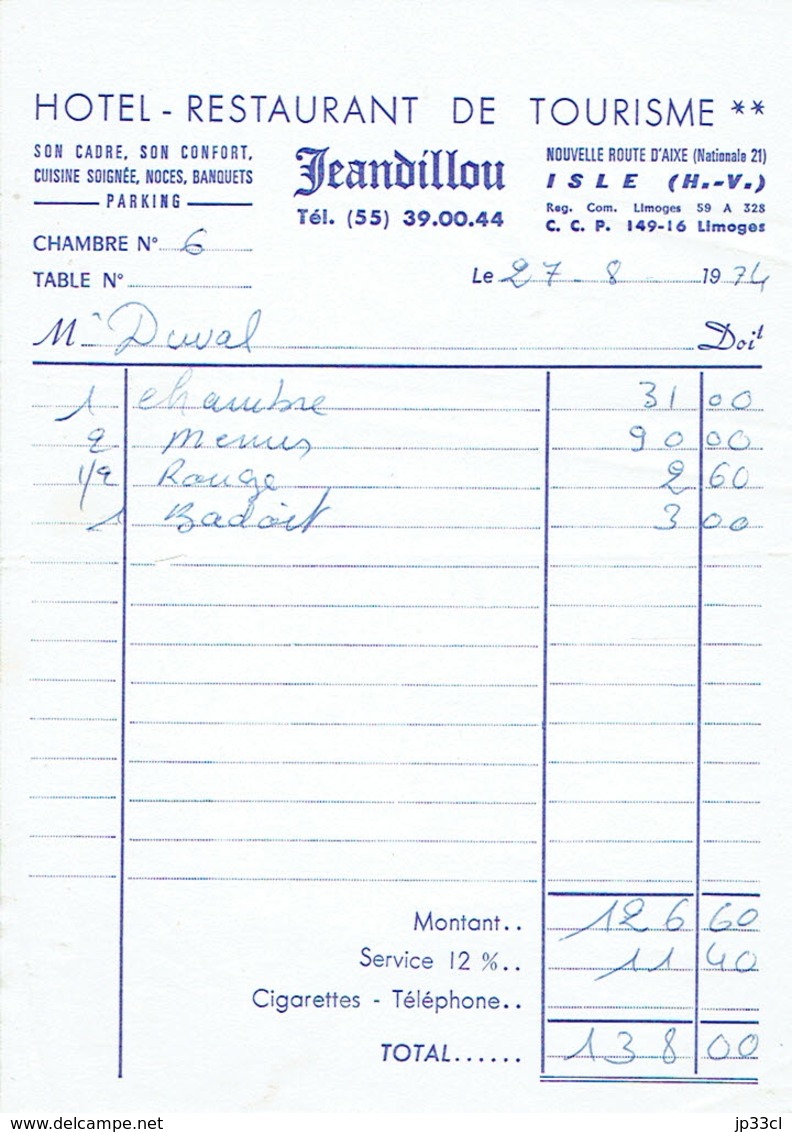 HOTEL - RESTAURANT DE TOURISME **
SON CADRE, SON CONFORT,
CUISINE SOIGNÉE, NOCES, BANQUETS
PARKING
Jeandillou
Tél. (55) 39.00.44
NOUVELLE ROUTE D'AIXE (Nationale 21)
ISLE (H.-V.)
Reg. Com. Limoges 59 A 328
C. C. P. 149-16 Limoges
CHAMBRE N° 6
TABLE N°
Le 27 - 8 - 1974
M Duval Doit
1 chambre 31 00
2 menus 90 00
1/2 Rouge 2 60
1 Badoit 3 00
Montant.. 126 60
Service 12 %.. 11 40
Cigarettes - Téléphone..
TOTAL...... 138 00
delcampe.net
jp33cl